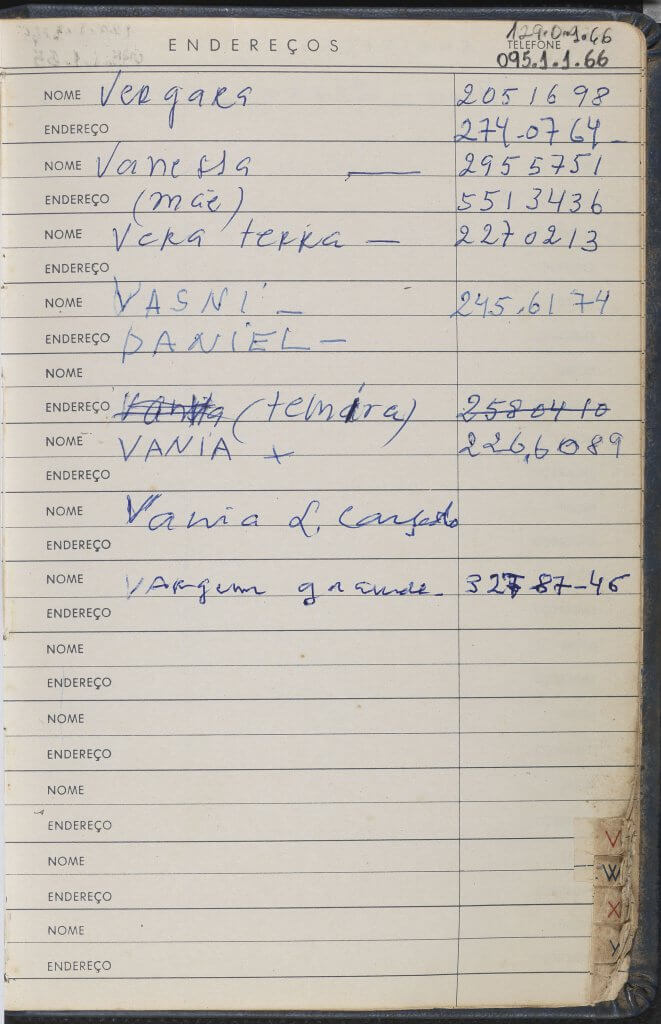 129.0.1.66
ENDEREÇOS TELEFONE
095.1.1.66
NOME Vergara 2051698
ENDEREÇO 274-0764-
NOME Vanessa — 2955751
ENDEREÇO (mãe) 5513436
NOME Vera terra — 2270213
ENDEREÇO
NOME VASNI — 245.6174
ENDEREÇO DANIEL —
NOME
ENDEREÇO Vanita (temira) 2580410
NOME VANIA + 226.6089
ENDEREÇO
NOME Vania L.
ENDEREÇO
NOME VArgem grande - 32787-46
ENDEREÇO
NOME
ENDEREÇO
NOME
ENDEREÇO
NOME
ENDEREÇO
NOME
ENDEREÇO
NOME
ENDEREÇO
V
W
X
Y